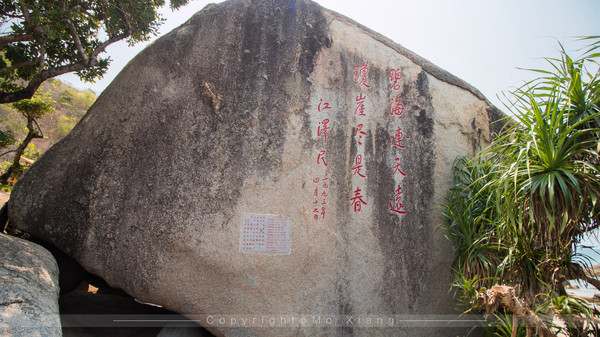 碧海連天遠
瓊崖尽是春
江澤民
一九九三年
四月十七日
Copyright©Moi Xiang